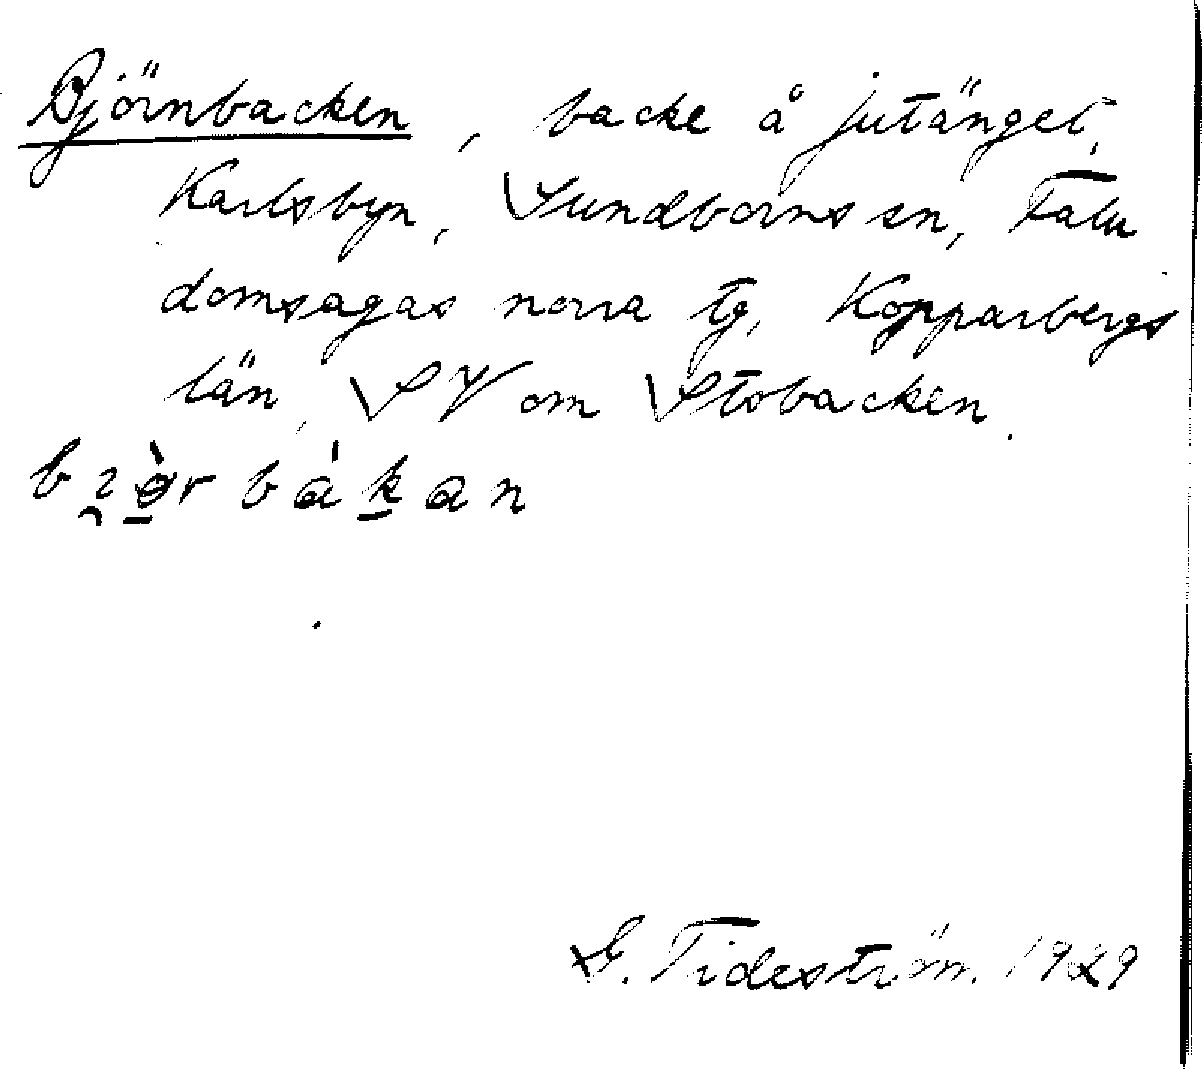 Björnbacken, backe å Jutänget,
Karlsbyn, Sundborns sn, Falu
domsagas norra tg, Kopparbergs
län, SV om Stobacken.
G. Tideström. 1929